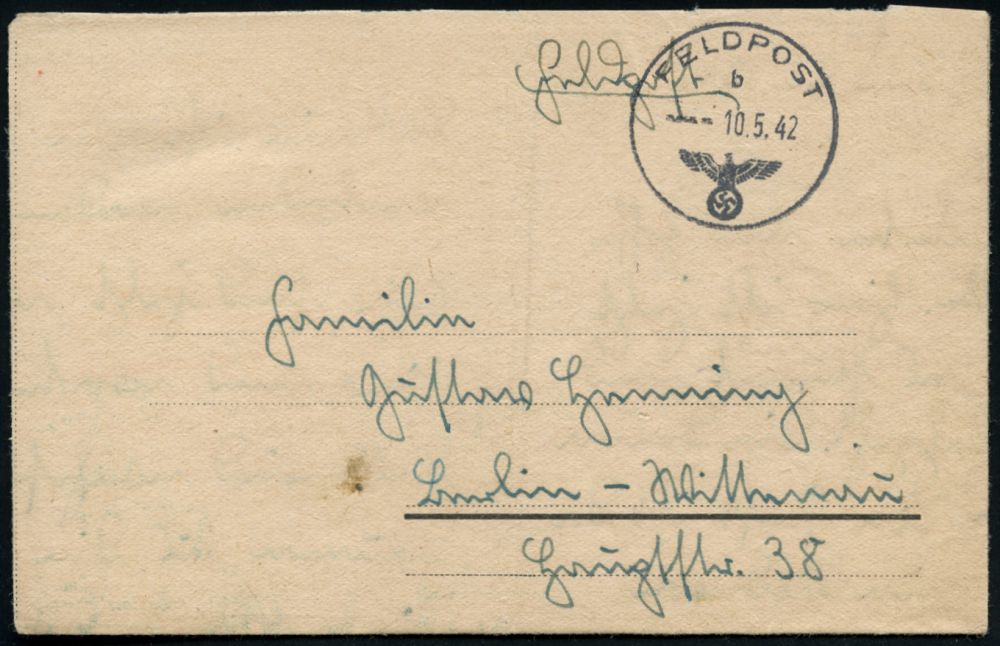 Feldpost
FELDPOST
b
10.5.42
Familie
Gustav Henning
Berlin - Wittenau
Hauptstr. 38